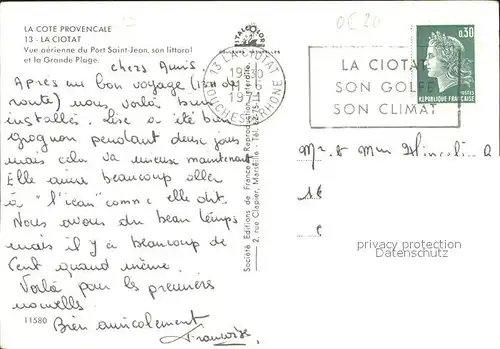 LA COTE PROVENCALE
13 - LA CIOTAT
Vue aérienne du Port Saint-Jean, son littoral
et la Grande Plage.
chers Amis
Après un bon voyage (1200 km de
route) nous voilà bien
installés. Lise a été bien
grognon pendant deux jours
mais cela va mieux maintenant
Elle aime beaucoup aller
à "l'eau" comme elle dit.
Nous avons du beau temps
mais il y a beaucoup de
vent quand même.
Voilà pour les premières
nouvelles.
Bien amicalement
Françoise
11580
COULEURS NATURELLES
Société Editions de France - Reproduction Interdite.
2, rue Clapier, Marseille - Tél.
13 LA CIOTAT
BOUCHES DU RHONE
LA CIOTAT
SON GOLFE
SON CLIMAT
0,30
POSTES
REPUBLIQUE FRANÇAISE
0€20
Mr & Mme
privacy protection
Datenschutz